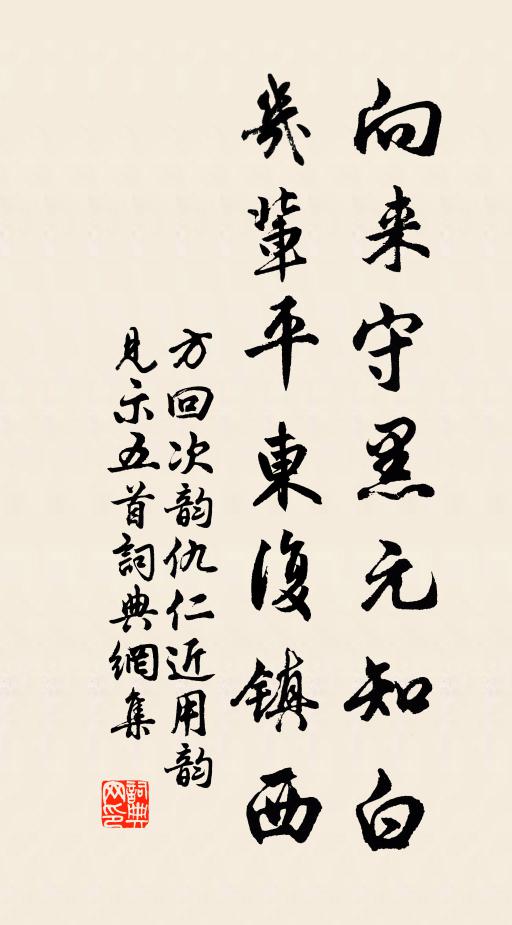 向来守黑元知白
幾輩平東復鎮西
方回次韵仇仁近用韵
見示五首詞典網集
詞典網印